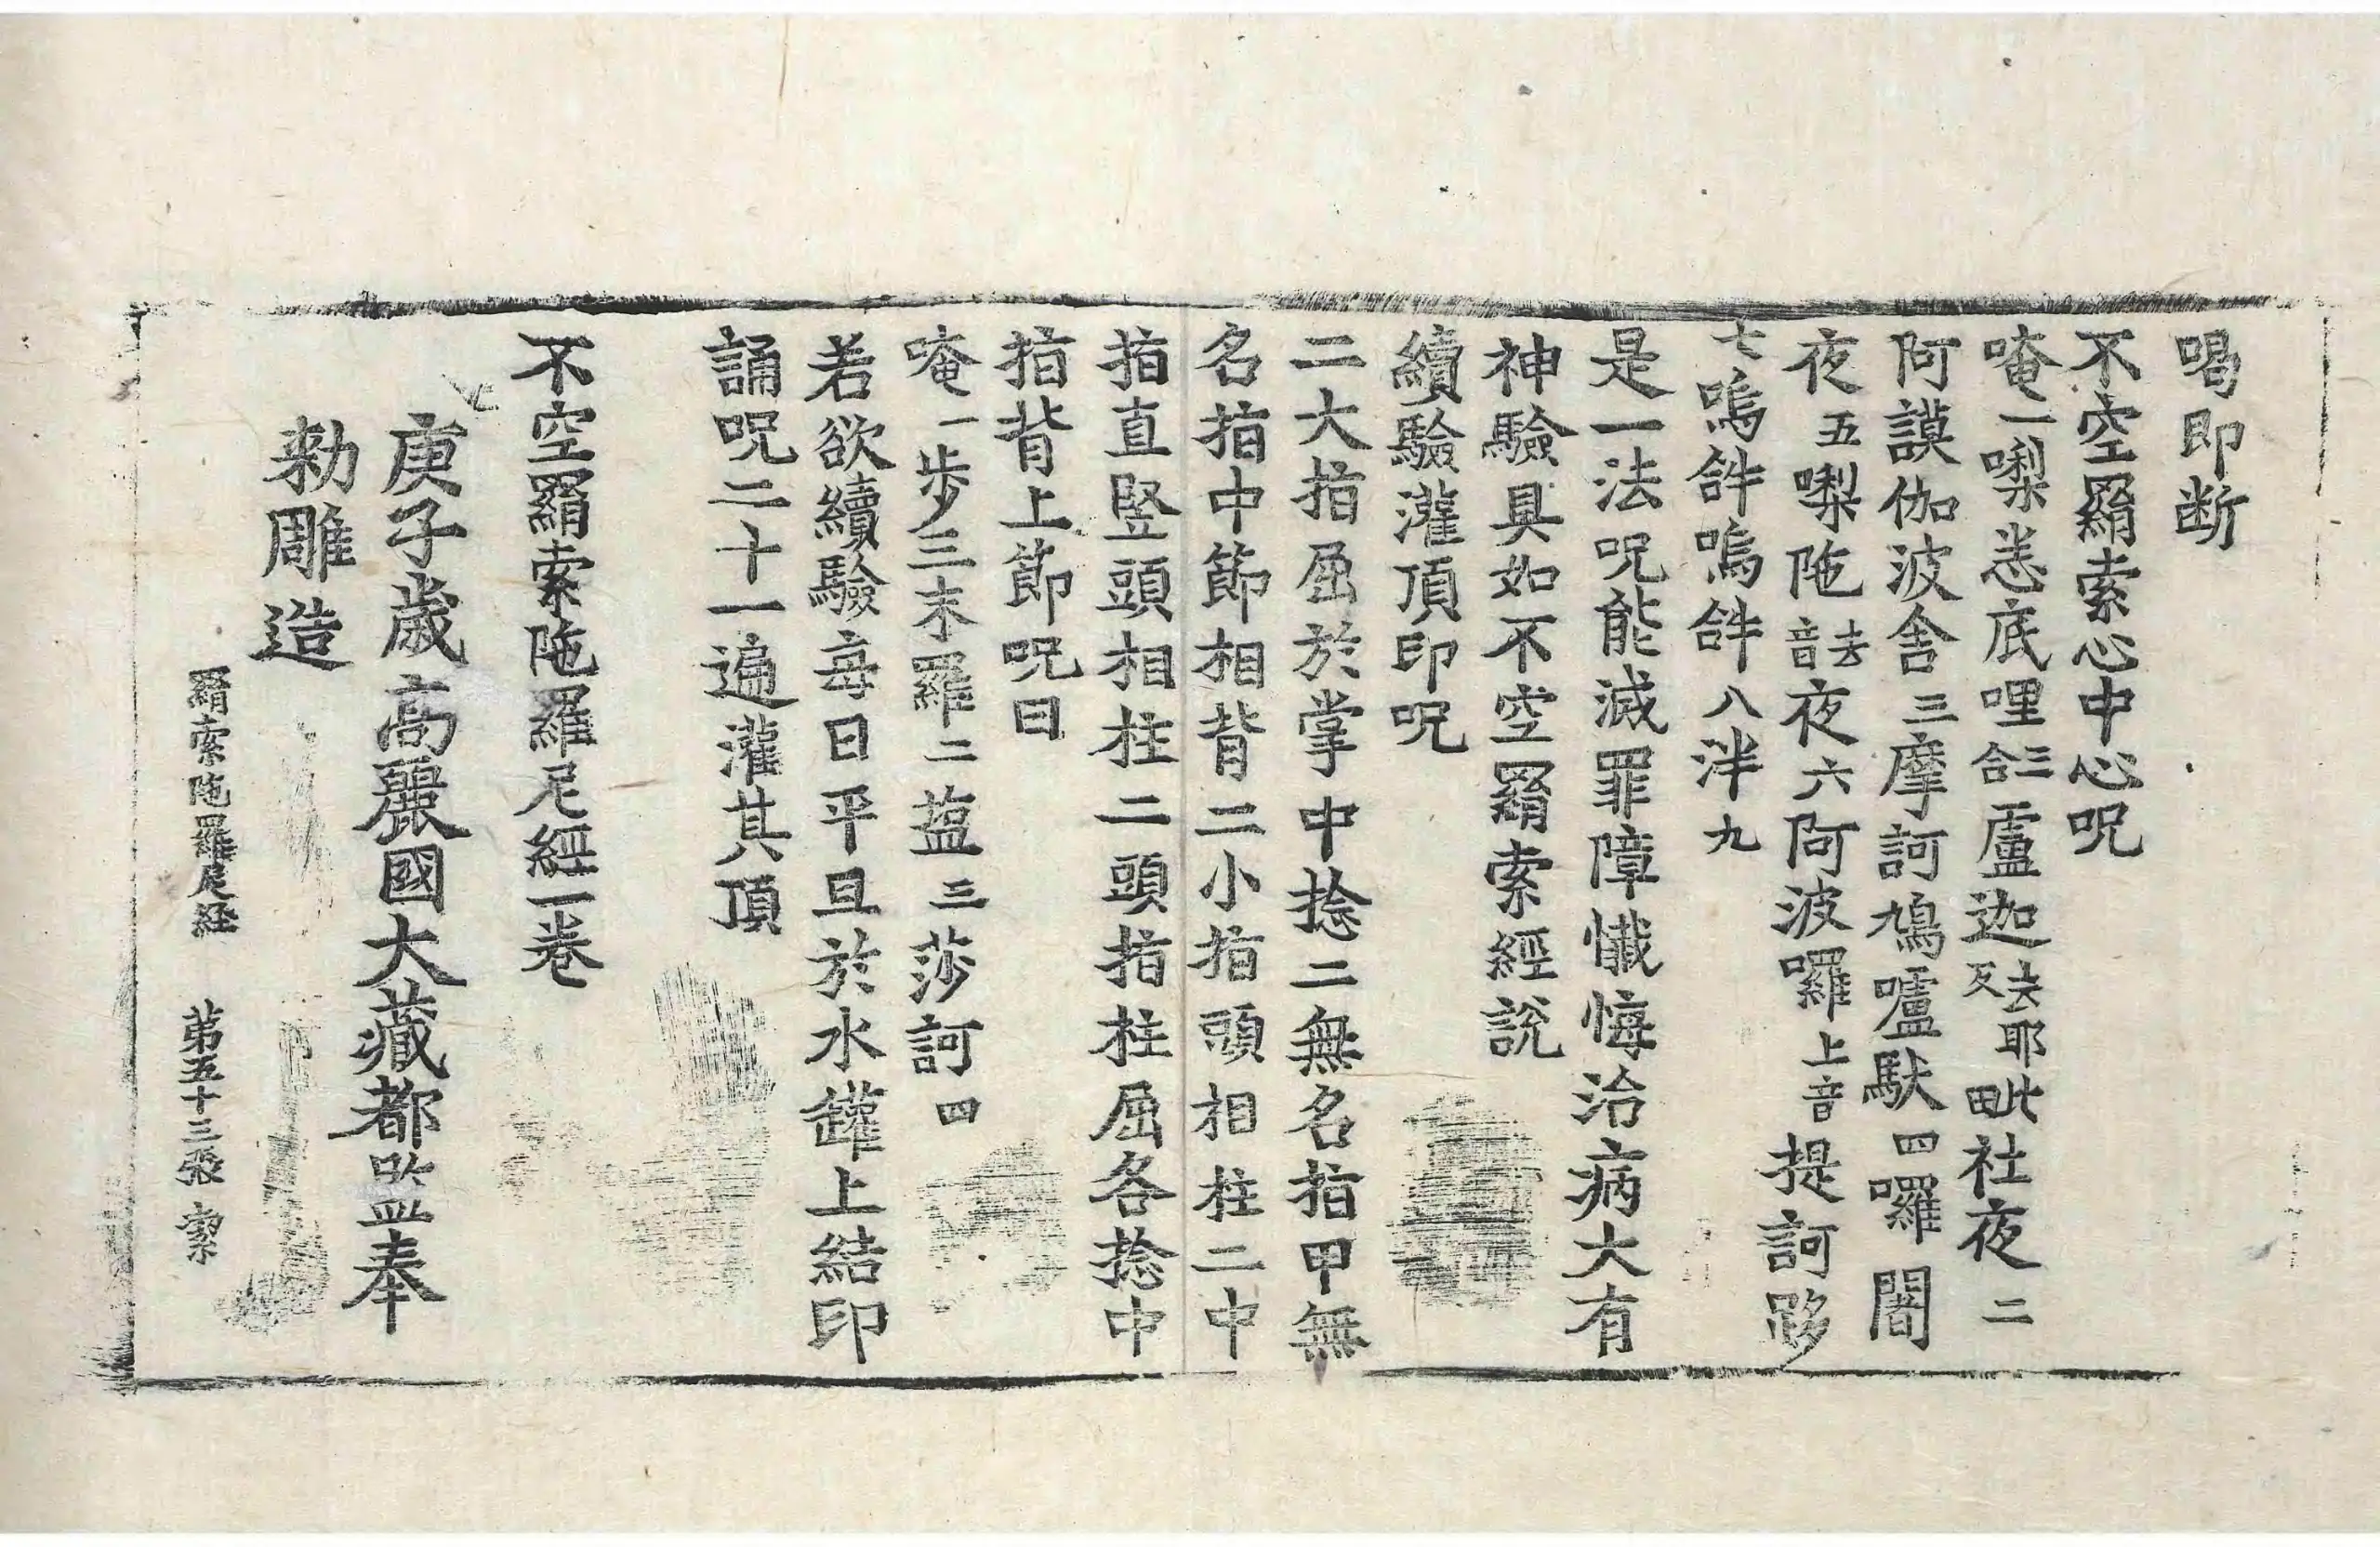 喝即断
不空羂索心中心呪
唵一㗚悉底哩三合盧迦去反耶毗社夜二
阿謨伽波舍三摩訶鳩嚧馱四囉闍
夜五㗚陁去音夜六阿波囉上音提訶𨁝
七嗚𤙖嗚𤙖八泮九
是一法呪能滅罪障懺悔治病大有
神驗具如不空羂索經說
續驗灌頂印呪
二大指屈於掌中捻二無名指甲無
名指中節相背二小指頭相柱二中
指直竪頭相柱二頭指柱屈各捻中
指背上節呪曰
唵一步三末羅二薀三莎訶四
若欲續驗每日平旦於水罐上結印
誦呪二十一遍灌其頂
不空羂索陁羅尼經一卷
庚子歲高麗國大藏都監奉
勅雕造
羂索陁羅尼經 第五十三張 潔